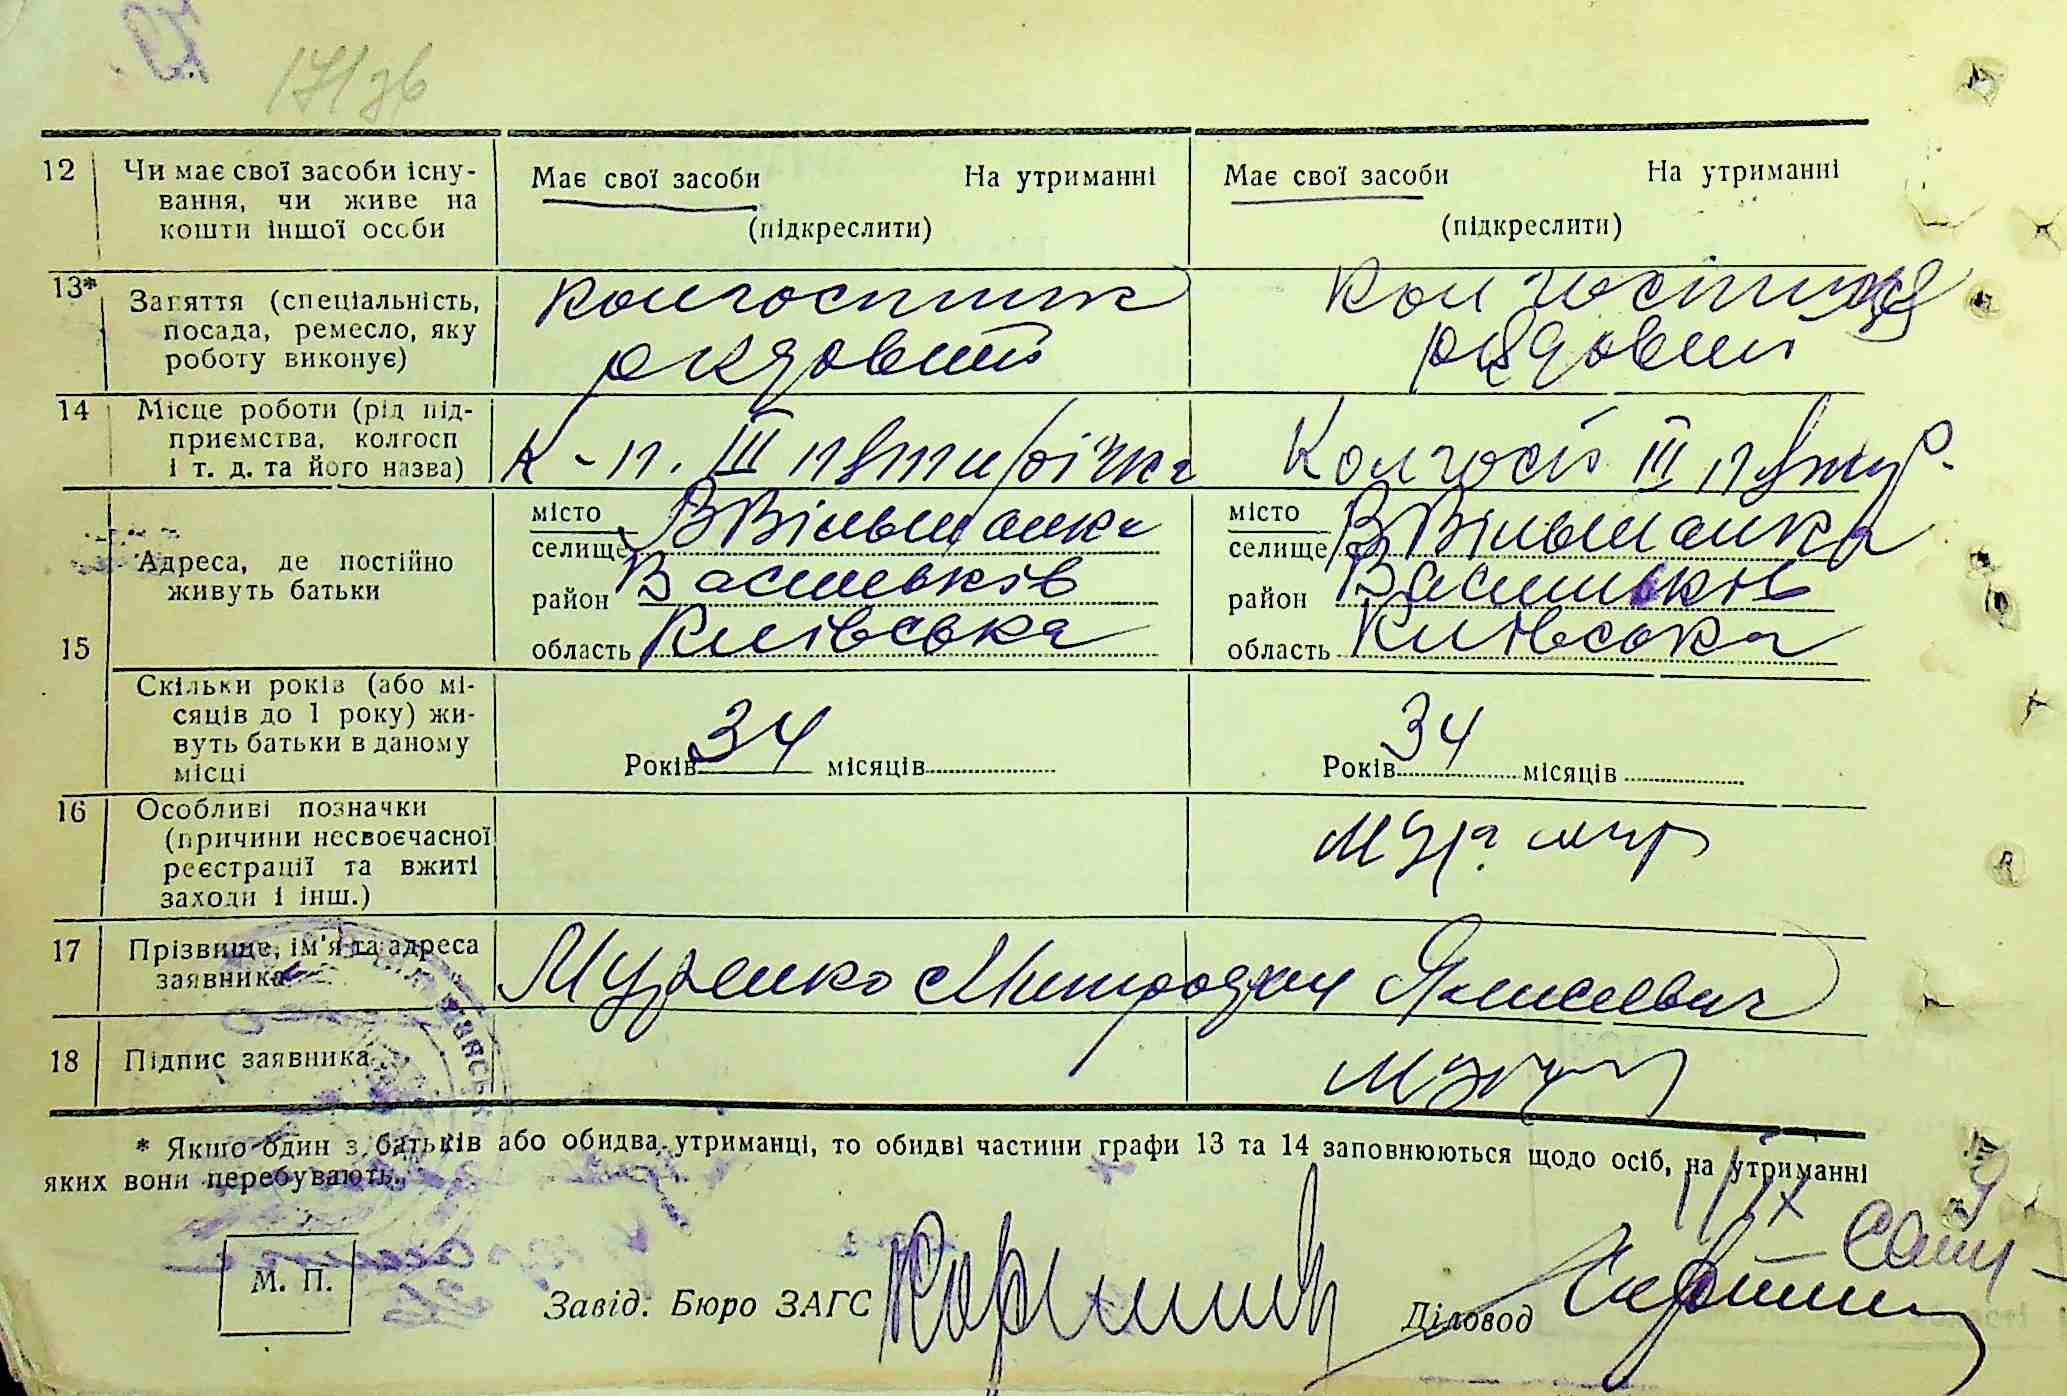 171зв
12 Чи має свої засоби існу-
вання, чи живе на
кошти іншої особи
Має свої засоби На утриманні
(підкреслити)
Має свої засоби На утриманні
(підкреслити)
13* Заняття (спеціальність,
посада, ремесло, яку
роботу виконує)
колгоспник
рядовий
колгоспниця
рядовий
14 Місце роботи (рід під-
приємства, колгосп
і т. д. та його назва)
К-п. III пятирічка
Колгосп III
15 Адреса, де постійно
живуть батьки
місто
селище ВВільшанка
район Васильків
область Київська
місто
селище ВВільшанка
район Васильків
область Київська
Скільки років (або мі-
сяців до 1 року) жи-
вуть батьки в даному
місці
Років 34 місяців
Років 34 місяців
16 Особливі позначки
(причини несвоєчасної
реєстрації та вжиті
заходи і інш.)
17 Прізвище, ім'я та адреса
заявника
Муренко Митрофан
18 Підпис заявника
* Якщо один з батьків або обидва утриманці, то обидві частини графи 13 та 14 заповнюються щодо осіб, на утриманні
яких вони перебувають.
М. П.
Завід. Бюро ЗАГС
Діловод